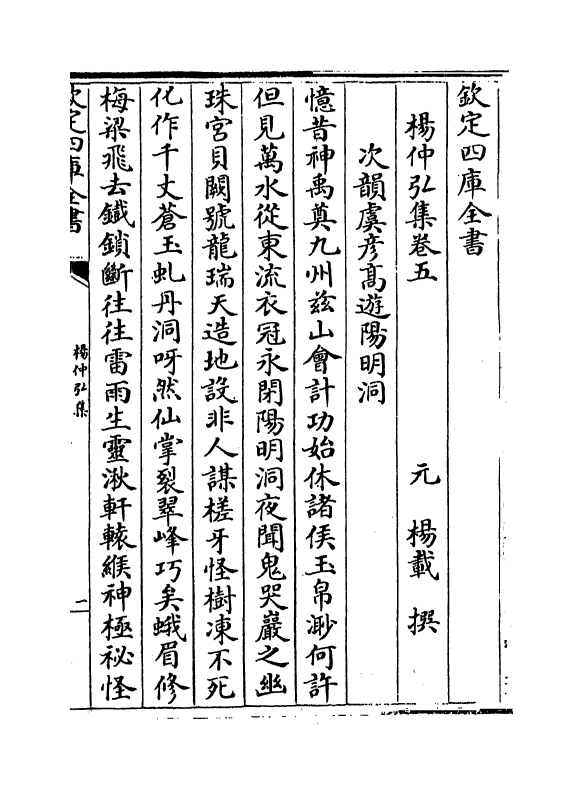 欽定四庫全書
楊仲弘集卷五
元 楊載 撰
次韻虞彦髙遊陽明洞
憶昔神禹奠九州兹山會計功始休諸侯玉帛渺何許
但見萬水從東流衣冠永閉陽明洞夜聞鬼哭巖之幽
珠宮貝闕號龍瑞天造地設非人謀槎牙怪樹凍不死
化作千丈蒼玉虬丹洞呀然仙掌裂翠峰巧矣蛾眉修
梅梁飛去鐵鎖斷往往雷雨生靈湫軒轅緱神極祕怪
欽定四庫全書
楊仲弘集
一